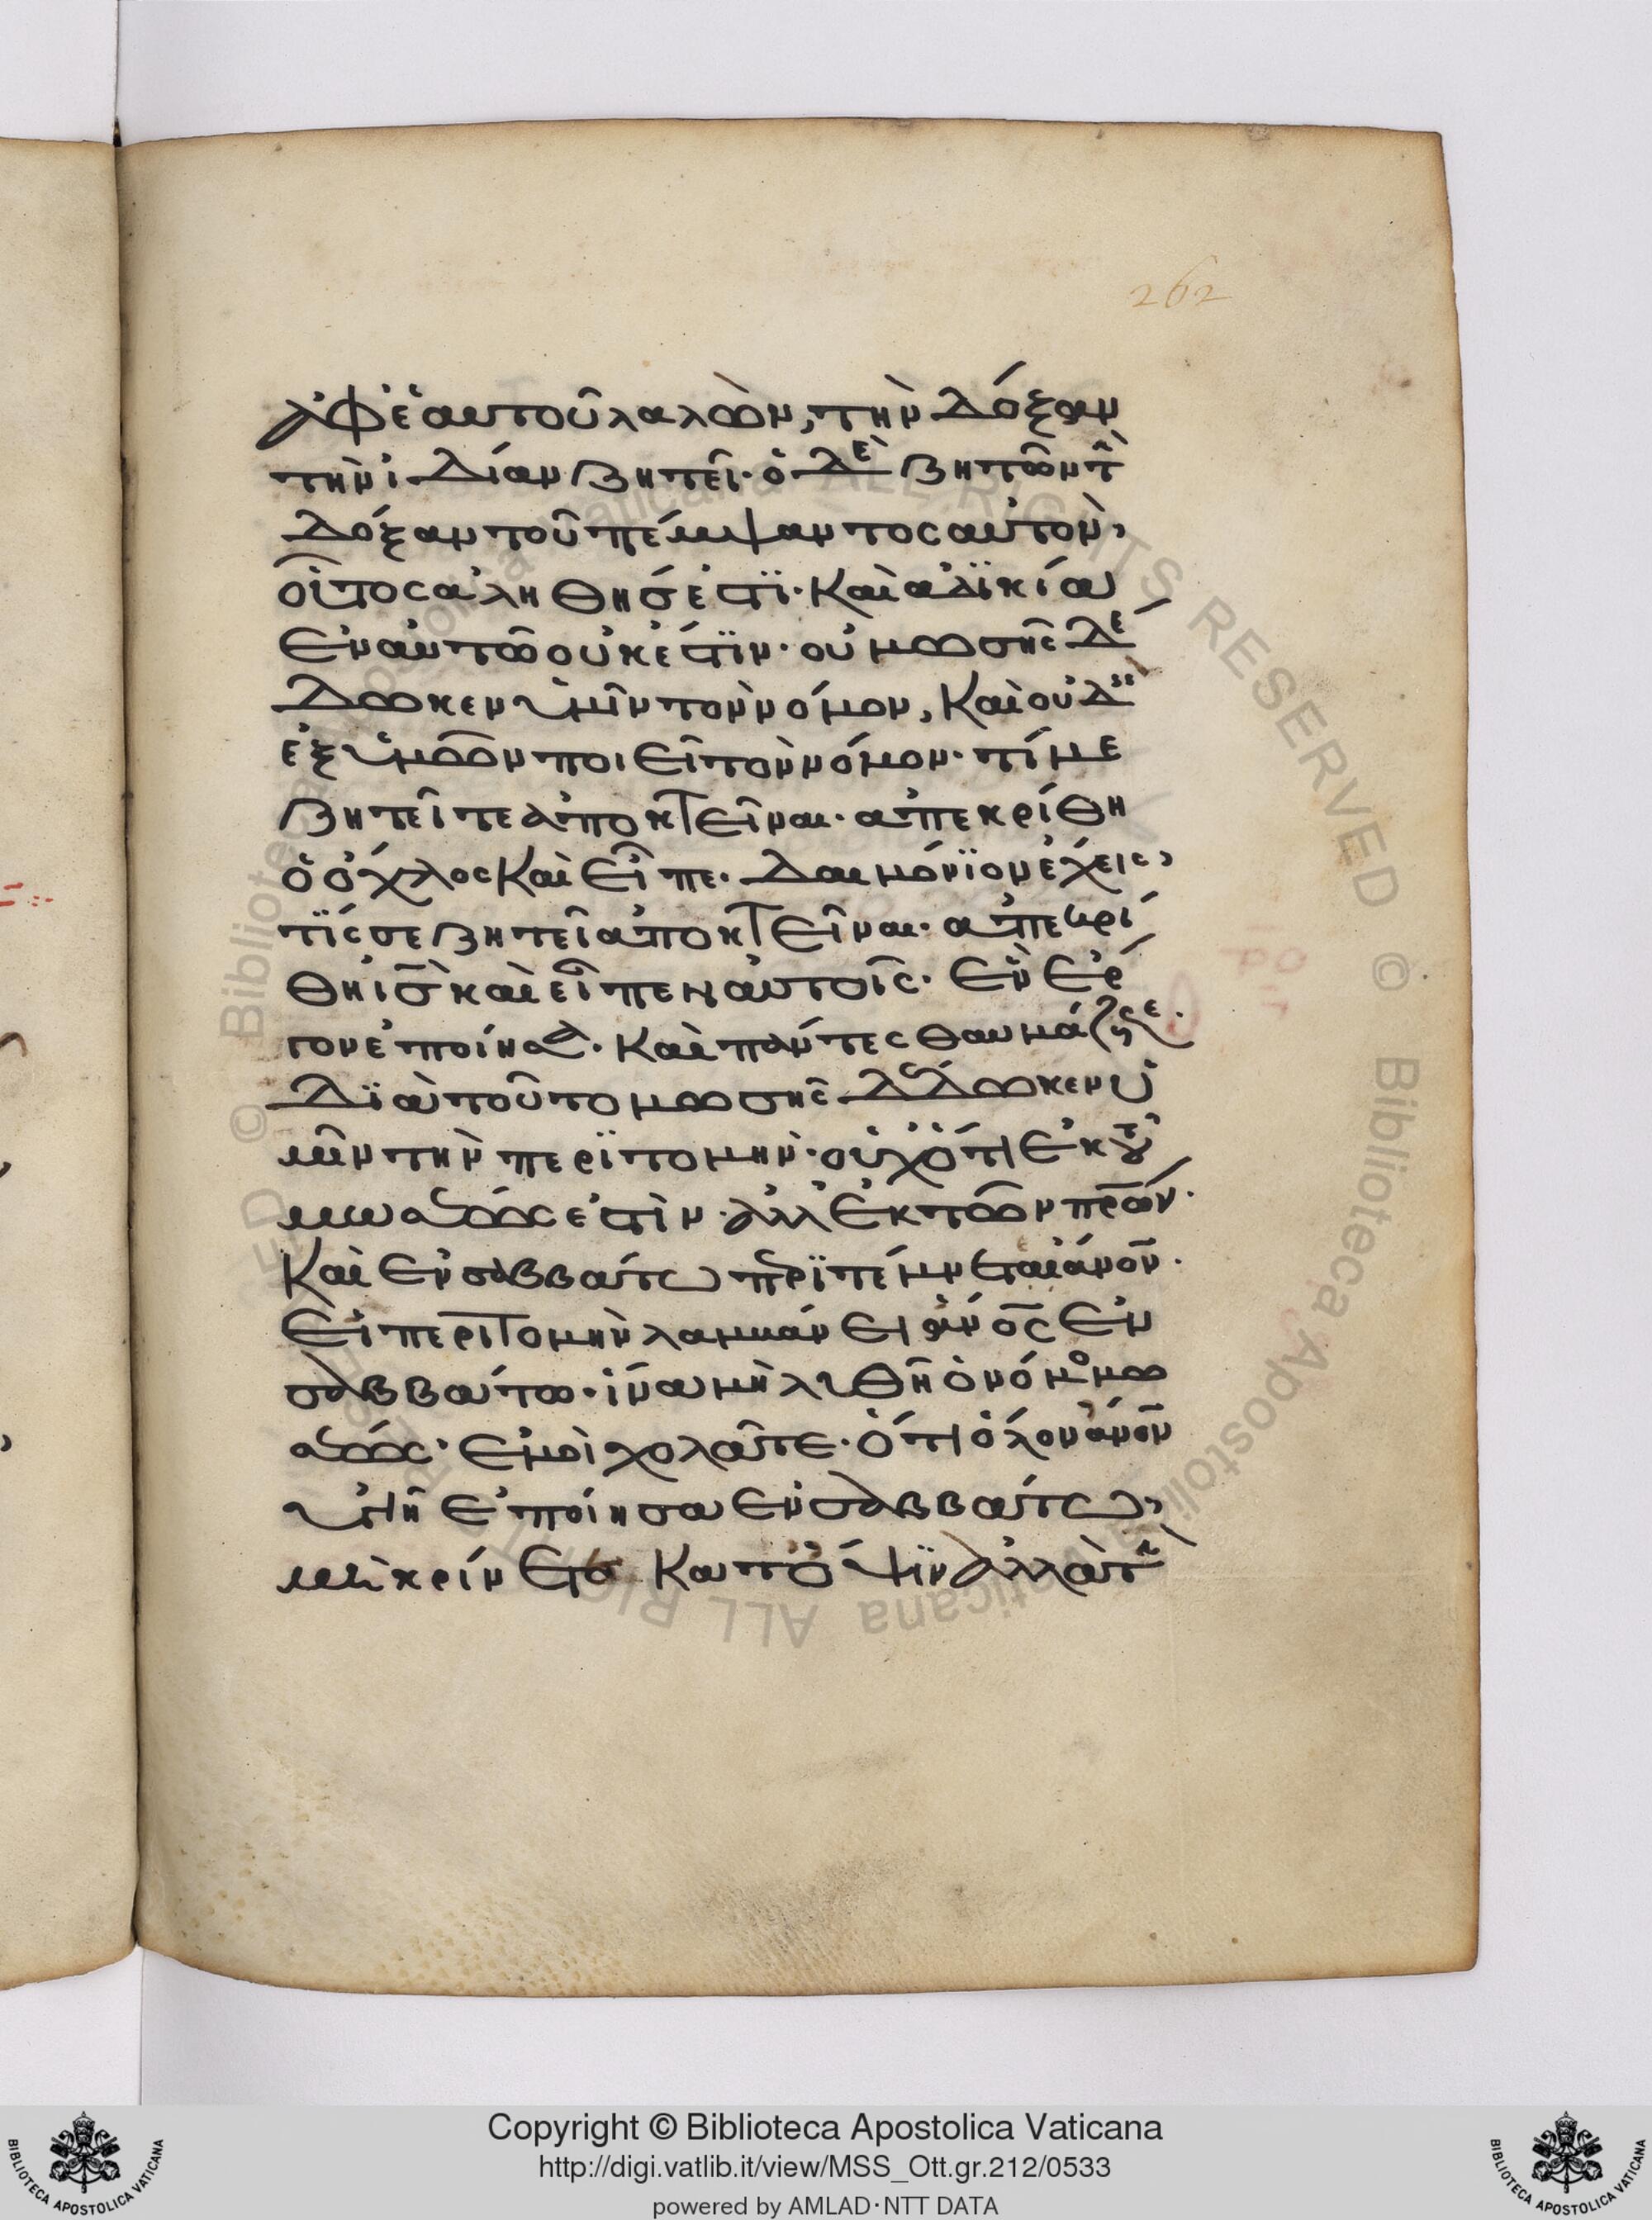 262
ἀφ' ἑαυτοῦ λαλῶν, τὴν δόξαν
τὴν ἰδίαν ζητεῖ· ὁ δὲ ζητῶν τὴ
δόξαν τοῦ πέμψαντος αὐτὸν,
οὗτος ἀληθής ἐστϊ· Καὶ ἀδϊκία
ἐν αὐτῶ οὐκ ἔστϊν· οὐ μωσῆς δέ
δωκεν ὑμῖν τὸν νόμον, Καὶ οὐδεὶς
ἐξ ὑμῶν ποιεῖ τὸν νόμον· τί με
ζητεῖτε ἀποκτεῖναι· ἀπεκρίθη
ὁ ὄχλος Καὶ εἶπε· δαιμόνϊον ἔχεις,
τΐς σε ζητεῖ ἀποκτεῖναι· ἀπεκρί
θη ὁ ις καὶ εἶπεν αὐτοῖς· ἓν ἔρ
γον ἐποίησα· Καὶ πάντες θαυμάζετε·
Δϊὰ τοῦτο μωσῆς δέδωκεν ὑ
μῖν τὴν περϊτομὴν· οὐχ ὅτι ἐκ τοῦ
μωσέως ἐστὶν· ἀλλ' ἐκ τῶν πρων·
Καὶ ἐν σαββάτω περϊτέμνεται ανον·
Εἰ περιτομὴν λαμβάνει ανος ἐν
σαββάτω· ἵνα μὴ λυθῆ ὁ νόμος μω
σέως· ἐμοὶ χολᾶτε· ὅτι ὅλον ανον
ὑγιῆ ἐποίησα ἐν σαββάτω,
μὴ κρίνετε Κατ' ὄψϊν ἀλλὰ τὴ
Copyright © Biblioteca Apostolica Vaticana
http://digi.vatlib.it/view/MSS_Ott.gr.212/0533
powered by AMLAD·NTT DATA
BIBLIOTECA APOSTOLICA VATICANA
BIBLIOTECA APOSTOLICA VATICANA